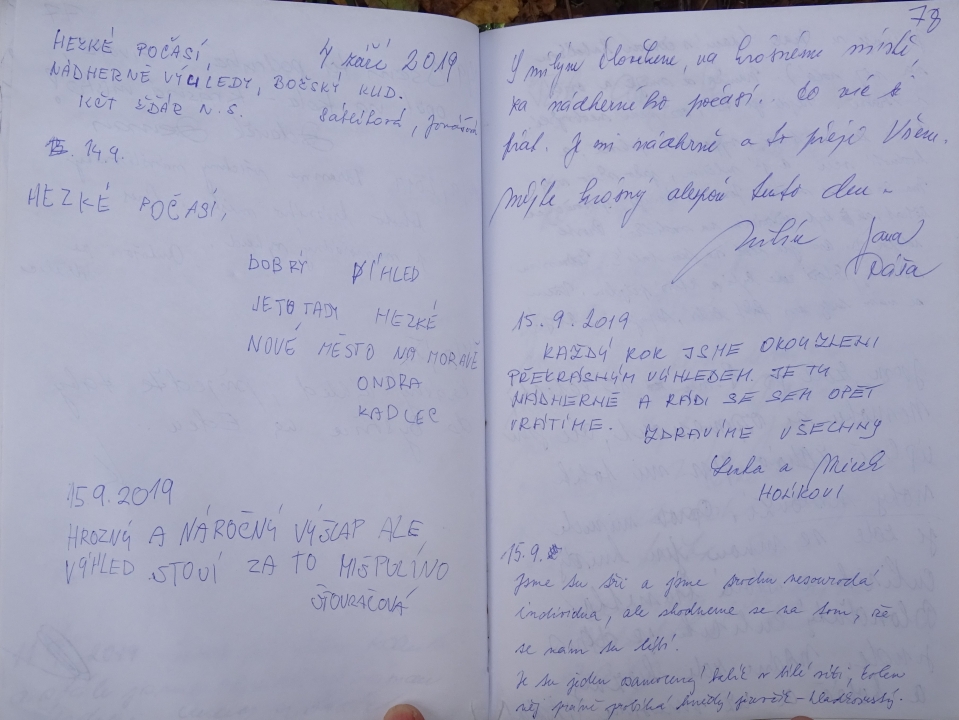 HEZKÉ POČASÍ, 4. září 2019
NÁDHERNÉ VÝHLEDY, BOŽSKÝ KLID.
KČT ŽĎÁR N.S.
14.9.
HEZKÉ POČASÍ,
DOBRÝ VÍHLED
JETO TADY HEZKÉ
NOVÉ MĚSTO NA MORAVĚ
ONDRA
KADLEC
15.9.2019
HROZNÝ A NÁROČNÝ VÝŠLAP ALE
VÝHLED STOJÍ ZA TO
ŠTOURAČOVÁ
78
S milým človekem, na krásném místě
za nádherného počasí.. co víc si
přát. Je mi nádherně a to přeji Všem.
Mějte krásný alespoň tento den -
Jana
Dáša
15.9.2019
KAŽDÝ ROK JSME OKOUZLENI
PŘEKRÁSNÝM VÝHLEDEM. JE TU
NÁDHERNĚ A RÁDI SE SEM OPĚT
VRÁTÍME. ZDRAVÍME VŠECHNY
Lenka a Mirek
HOLÍKOVI
15.9.
Jsme tu tři a jsme trochu nesourodá
individua, ale shodneme se na tom, že
se nám tu líbí.
Je tu jeden samorený v bílé